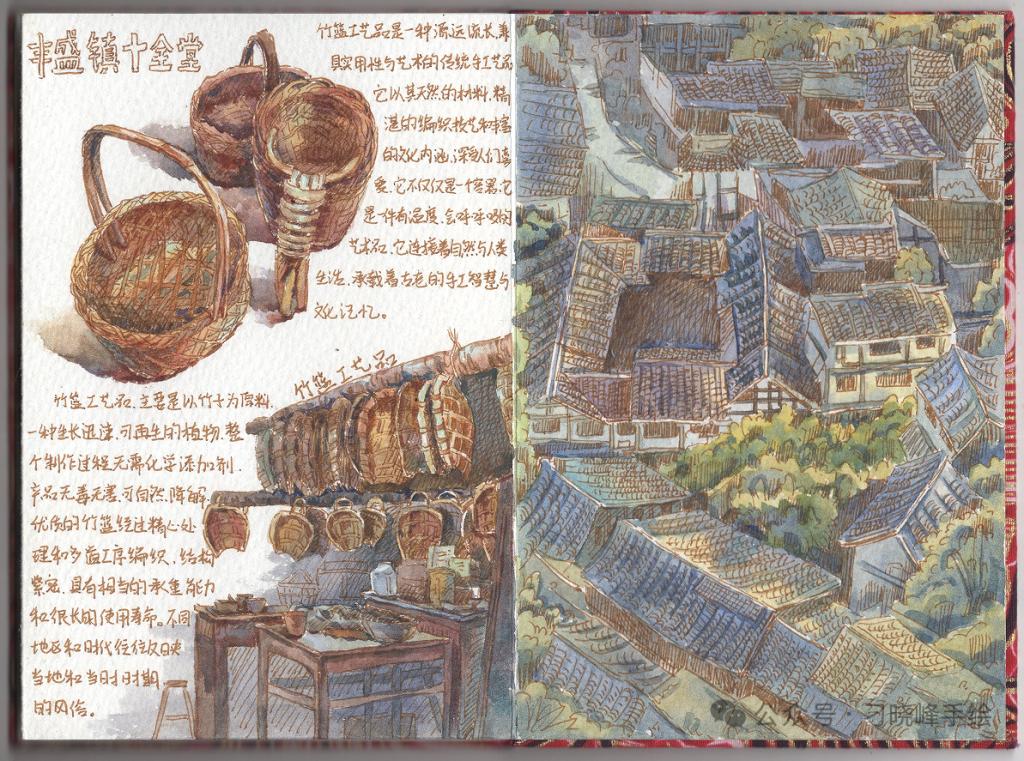 丰盛镇十全堂
竹篮工艺品是一种源远流长,兼
具实用性与艺术的传统手工艺品
它以其天然的材料,精
湛的编织技艺和丰富
的文化内涵,深受人们喜
爱,它不仅仅是一个容器,它
是一件有温度,会呼吸的
艺术品,它连接着自然与人类
生活,承载着古老的手工智慧与
文化记忆。
竹篮工艺品
竹篮工艺品,主要是以竹子为原料,
一种生长迅速,可再生的植物,整
个制作过程无需化学添加剂,
产品无毒无害,可自然降解,
优质的竹篮经过精心处
理和多道工序编织,结构
紧密,具有相当的承重能力
和很长的使用寿命。不同
地区和时代往往反映
当地和当时时期
的风俗。
公众号·刁晓峰手绘